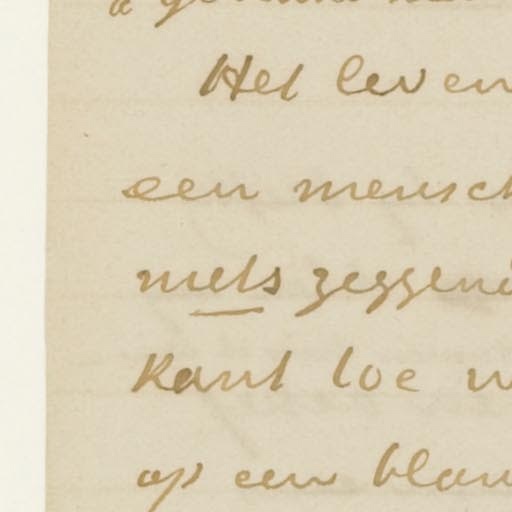 Het leven
een mensch
niets zeggend
kant toe
op een blan